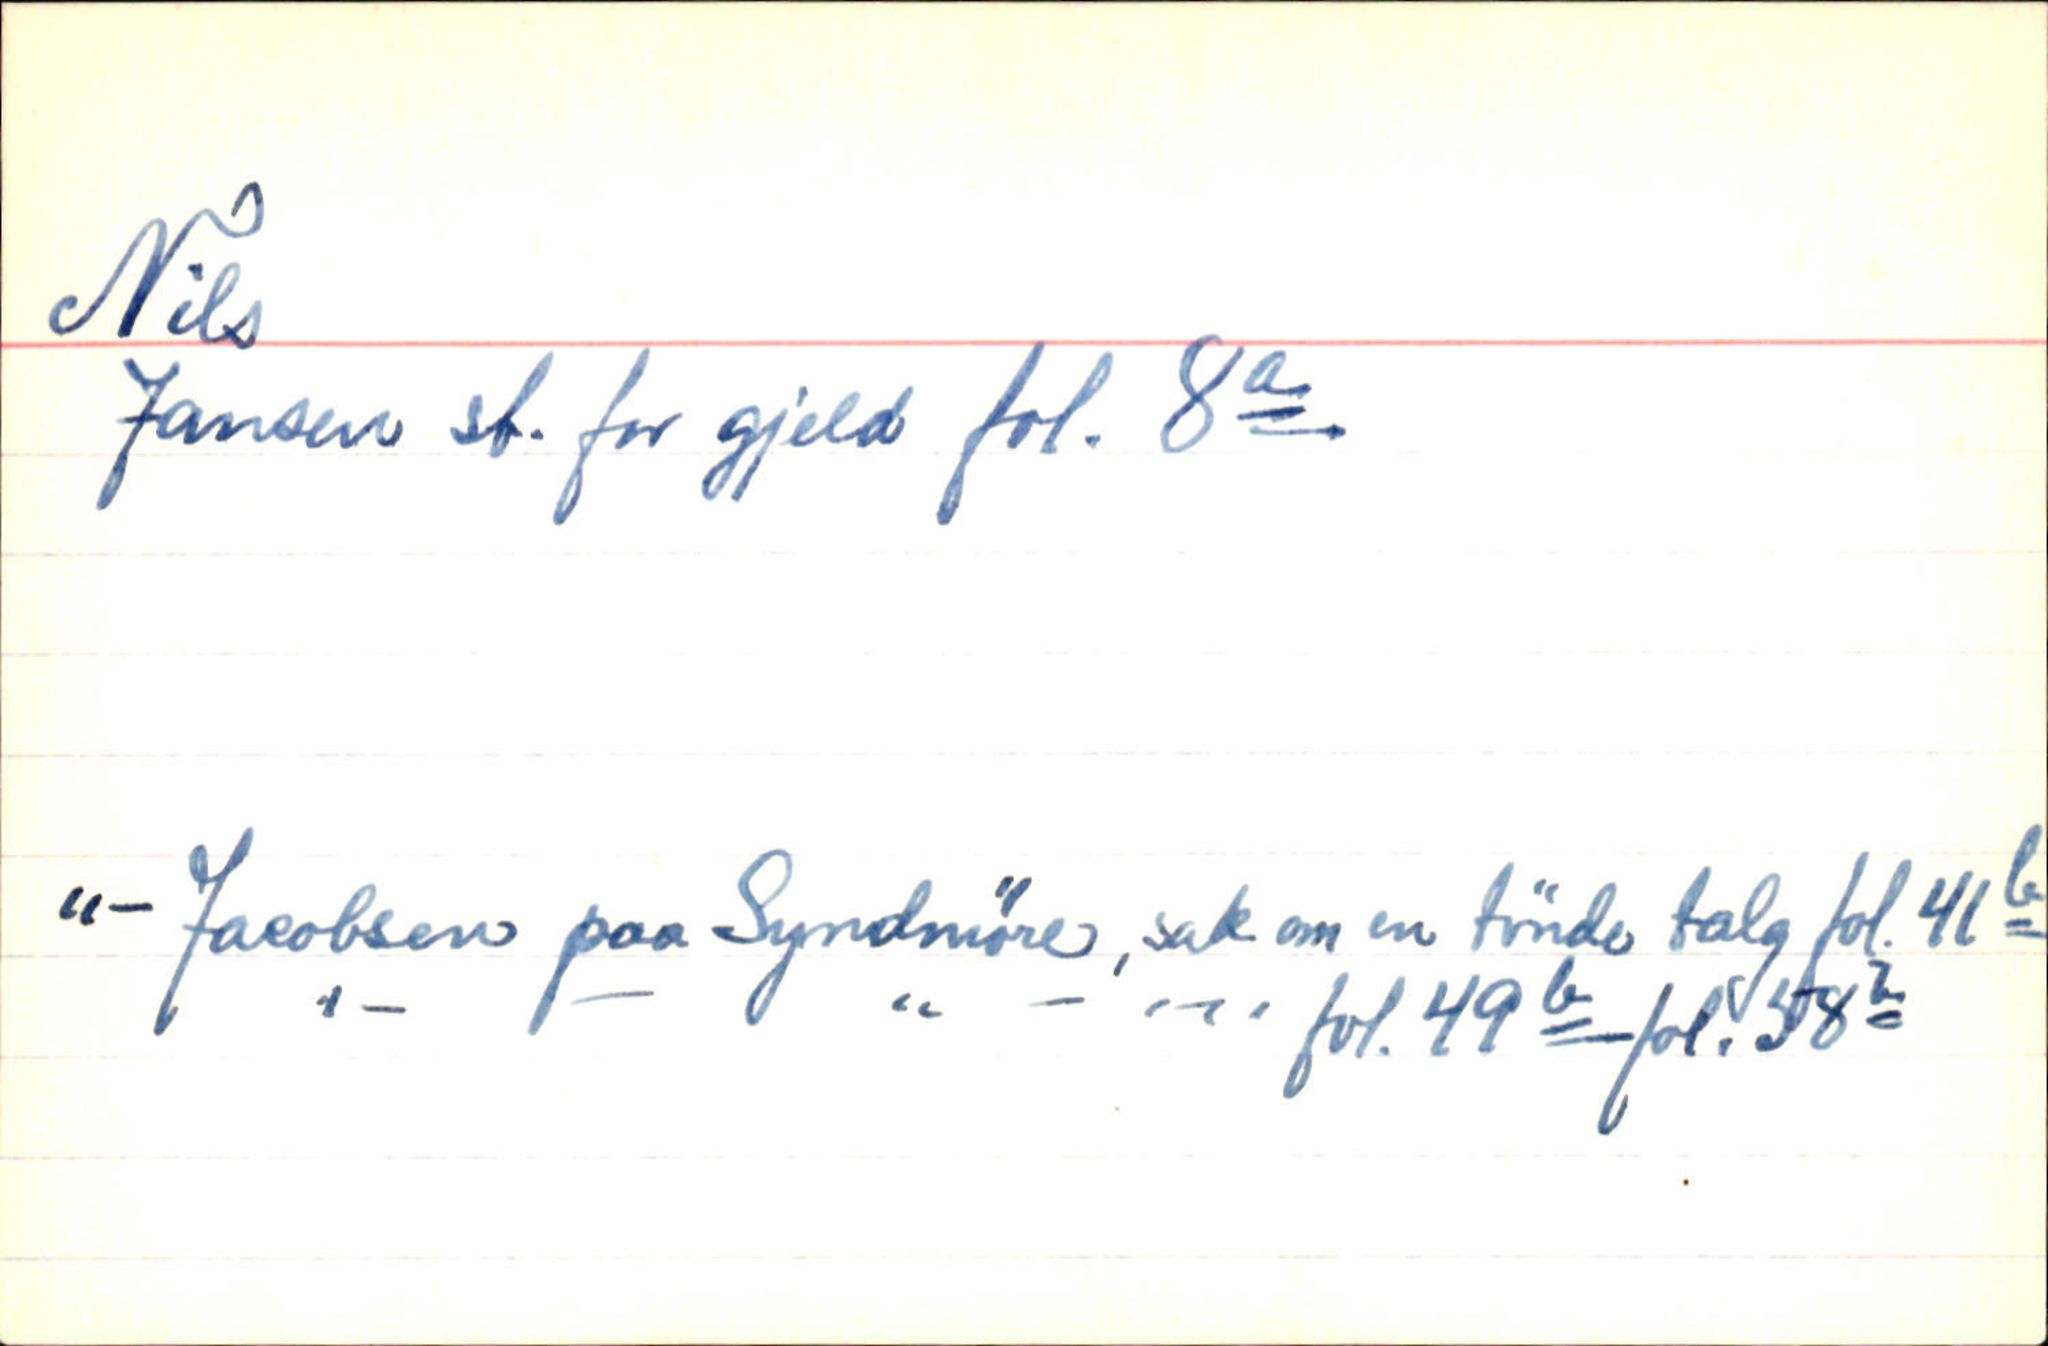 Nils
Jansen st. for gjeld fol. 8a
"- Jacobsen paa Syndmöre, sak om en tönde talg fol. 41b
"- — " - "-" fol. 49b fol. 58b